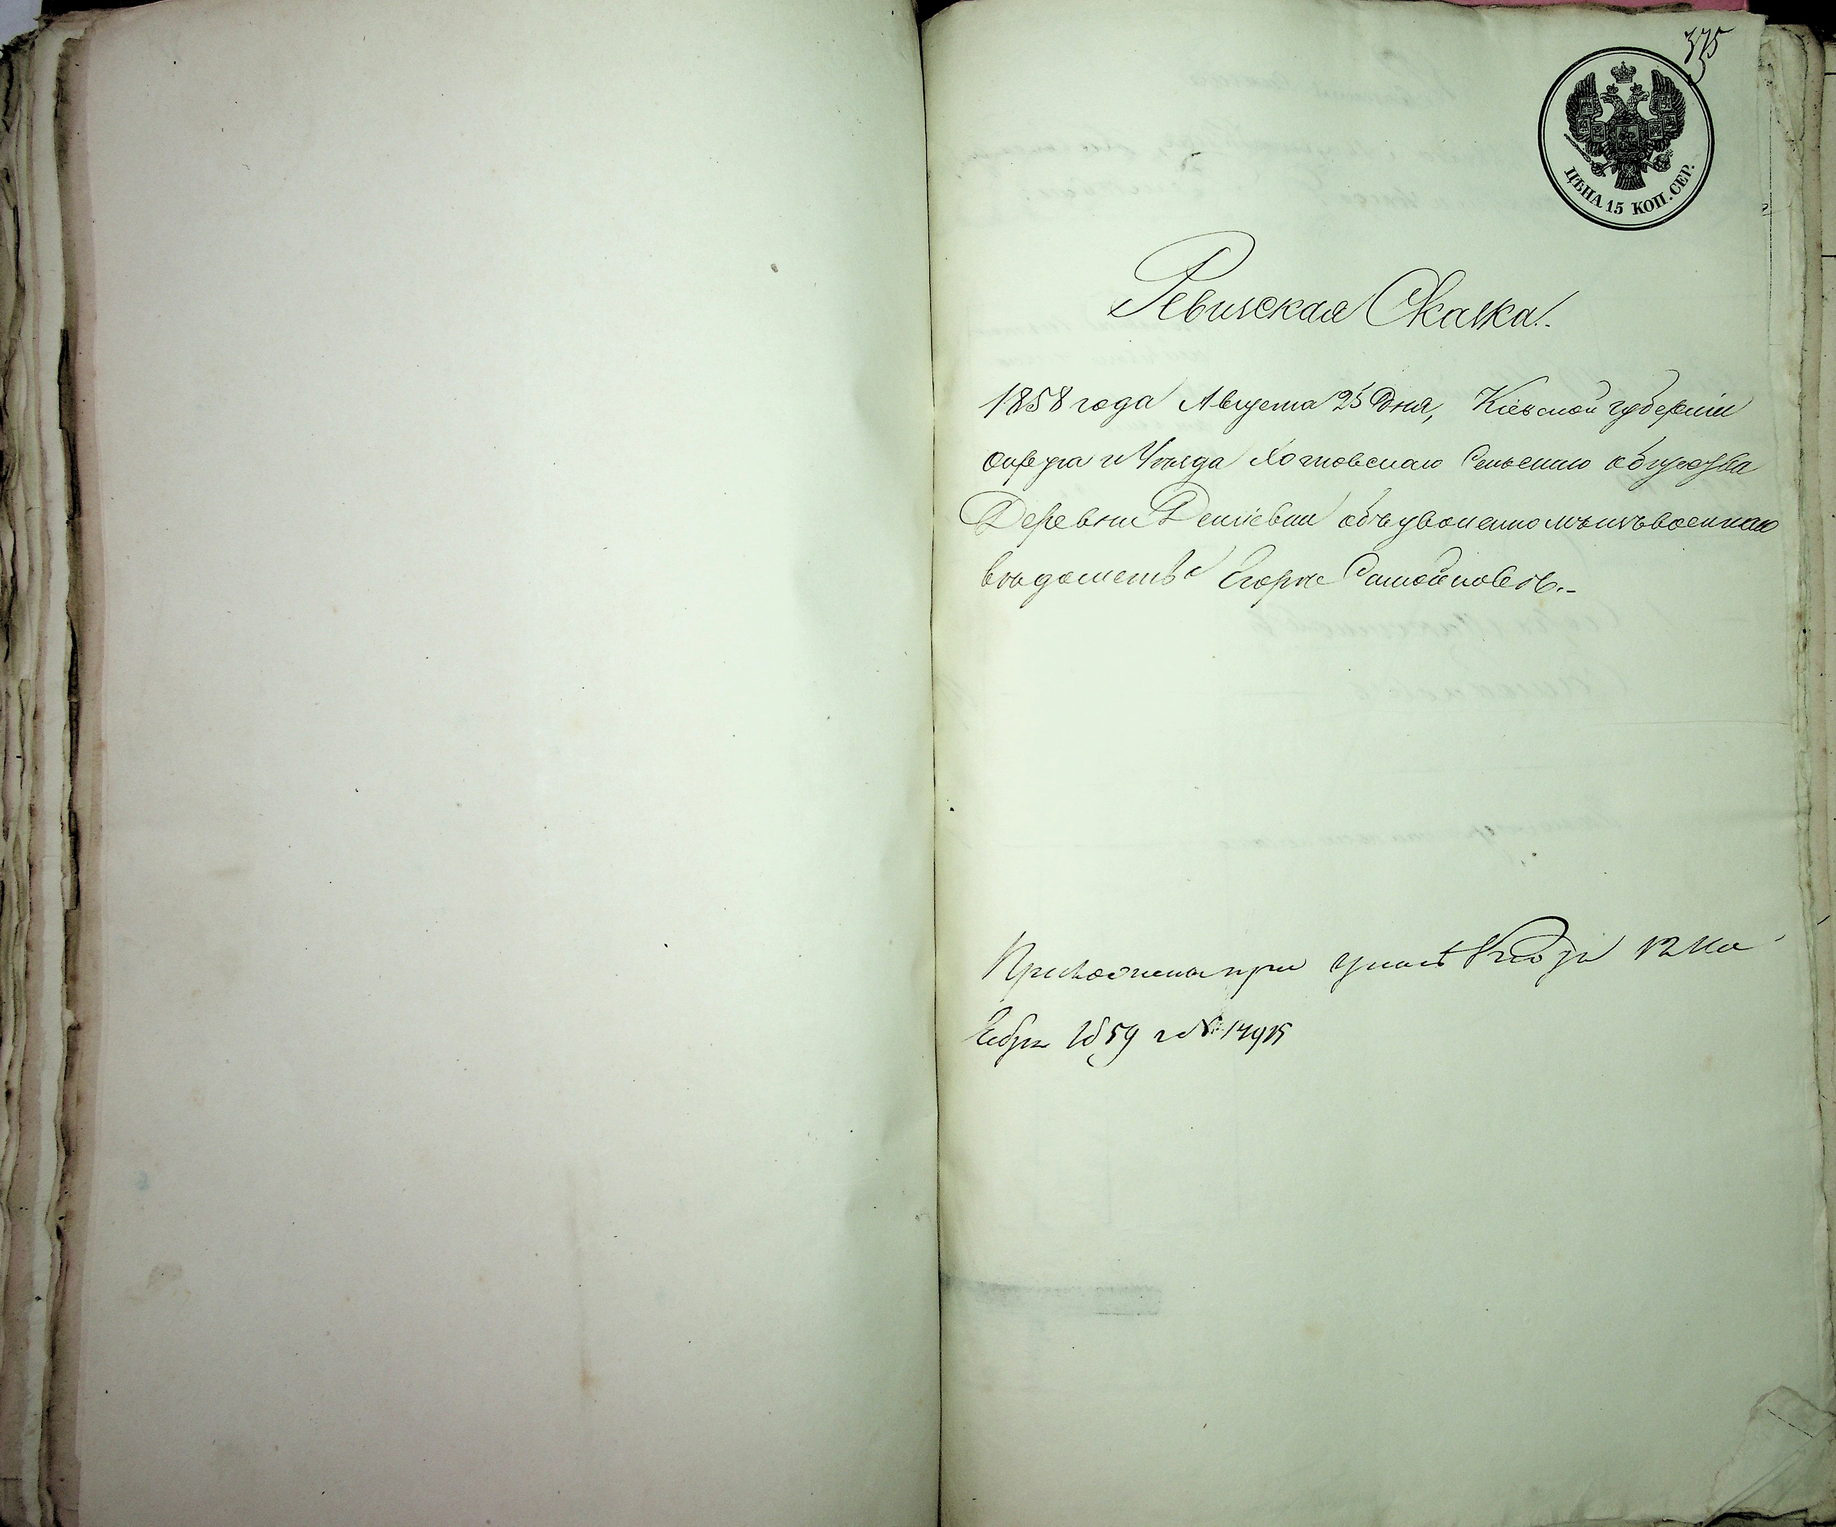 375
ЦѢНА 15 КОП. СЕР.
Ревизская Сказка.
1858 года Августа 25 Дня, Кіевской губерніи
округа и Уѣзда Хотовскаго Сельскаго общества
Деревни объ уволенномъ изъ военнаго
вѣдомства Егорѣ Самойловѣ.
при 12 Но
ября 1859 г №